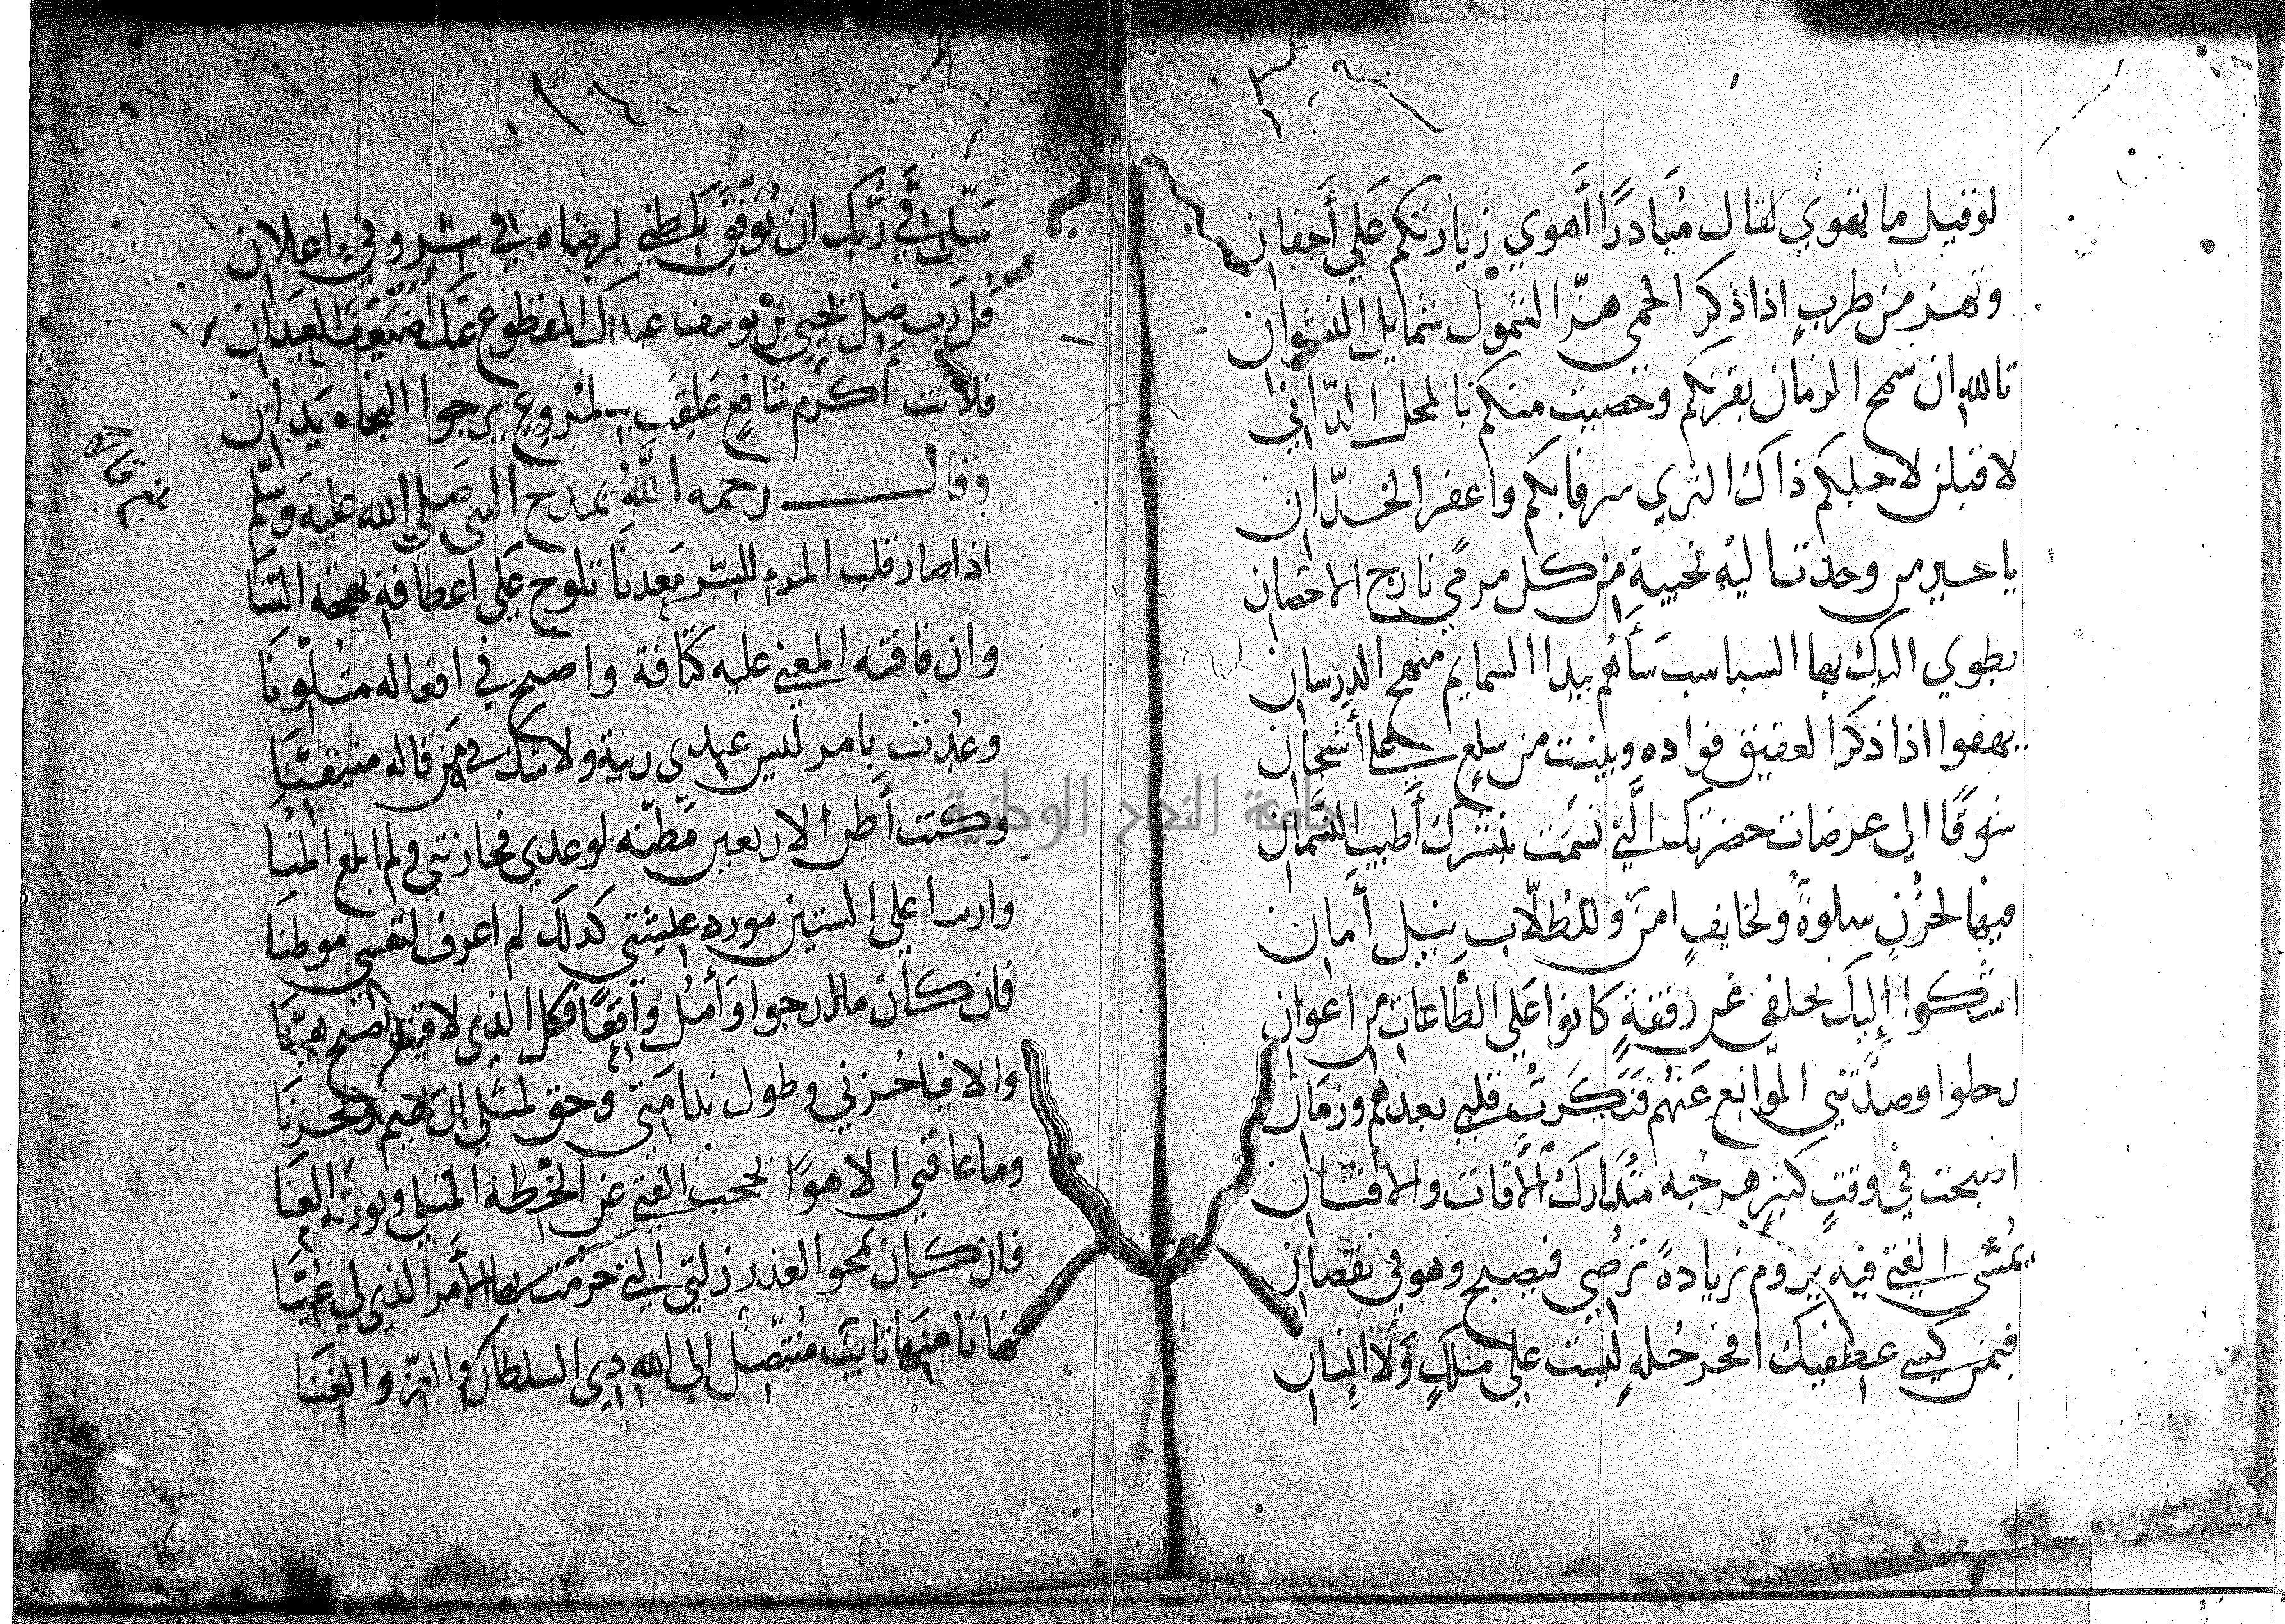 لو قيل ما تهوي لقال مُبادرًا أَهوي زيارتكم عَلي أَجفان
وتهز من طربٍ اذا ذكر الحمي هزّ الشمول شمايل النشوان
تالله ان سمح الزمان بقربكم وخصيت منكم بالمحل الداني
لاقبلن لاجلكم ذاك الثري واعفر الخدّان
يا خير من وخدت اليه نجيبة من كل مرمي نازح
يطوي اليك بها السباسب
يهفوا اذا ذكر العقيق فواده ويبيت من سلع علي أشجان
شوقًا الي عرصات حضرتك الَّتي
فيها لحزنٍ سلوةٌ ولخايفٍ امنٌ وللطُلّاب نيل أمان
اشكوا إليك تخلفي عن رفقةٍ كانوا عَلي الطَّاعات من اعوان
رحلوا وصدّتني الموانع عَنهم فتَكَّدَرت قلبي بعدهم وزمان
اصبحت في وقتٍ كثيرٍ هرجُه مُتَدارك الآفات والافتان
يمُشي الفتي فيه يروم زيادةً ترُضي فيصبح وهو في نقصان
فبمن كسي عطفيك افخر حُلةٍ ليست علي ملكٍ وَلا انسان
١٦٠
سَل لي رَّبك ان توُفِّق باطني لرضاه في سِّر وفي اعلان
قُل رَب صِل يحيي بن يوسف عبدك المقطوع عنك
فلأنت أكَرم شافعٍ عَلِقت يرجوا النجاه يَدان
وقال رحمه اللَّه يمدح النبي صَلي الله عليه وسَلّم
اذا صار قلب المرء للسّر مَعدنا تلوح عَلي اعطافه بهجة السّنا
وان فاقته المعني عليه كثافة واصبح في افعاله متُلّونَا
وعُدت بامر ليس عندي ريبة ولا شك في من قاله متيقنا
وكنت أظن الاربعين مظنّه لوعدي فجازتني ولم ابلغ المُنا
واربا علي الستين مورد عيشتي كذلك لم اعرف لنفسي موطنا
فان كان مالدرجوا وَأمُل وَاقعًا فكل الذي لاقيته
والا فيا حُزني وطول ندامَتي وحق لمثلي ان تهيم وتحزنَا
وما عاقني الا هوًا يحجب الفتي عن الخّطة المثلي ويورثه العنَا
فان كان يمحو العذر زلتي التي حرمت بها الأمر الذي لي عُيّنا
فها نا منها تايبٌ متنصّل الي الله ذي السلطان والعزّ والغنَا